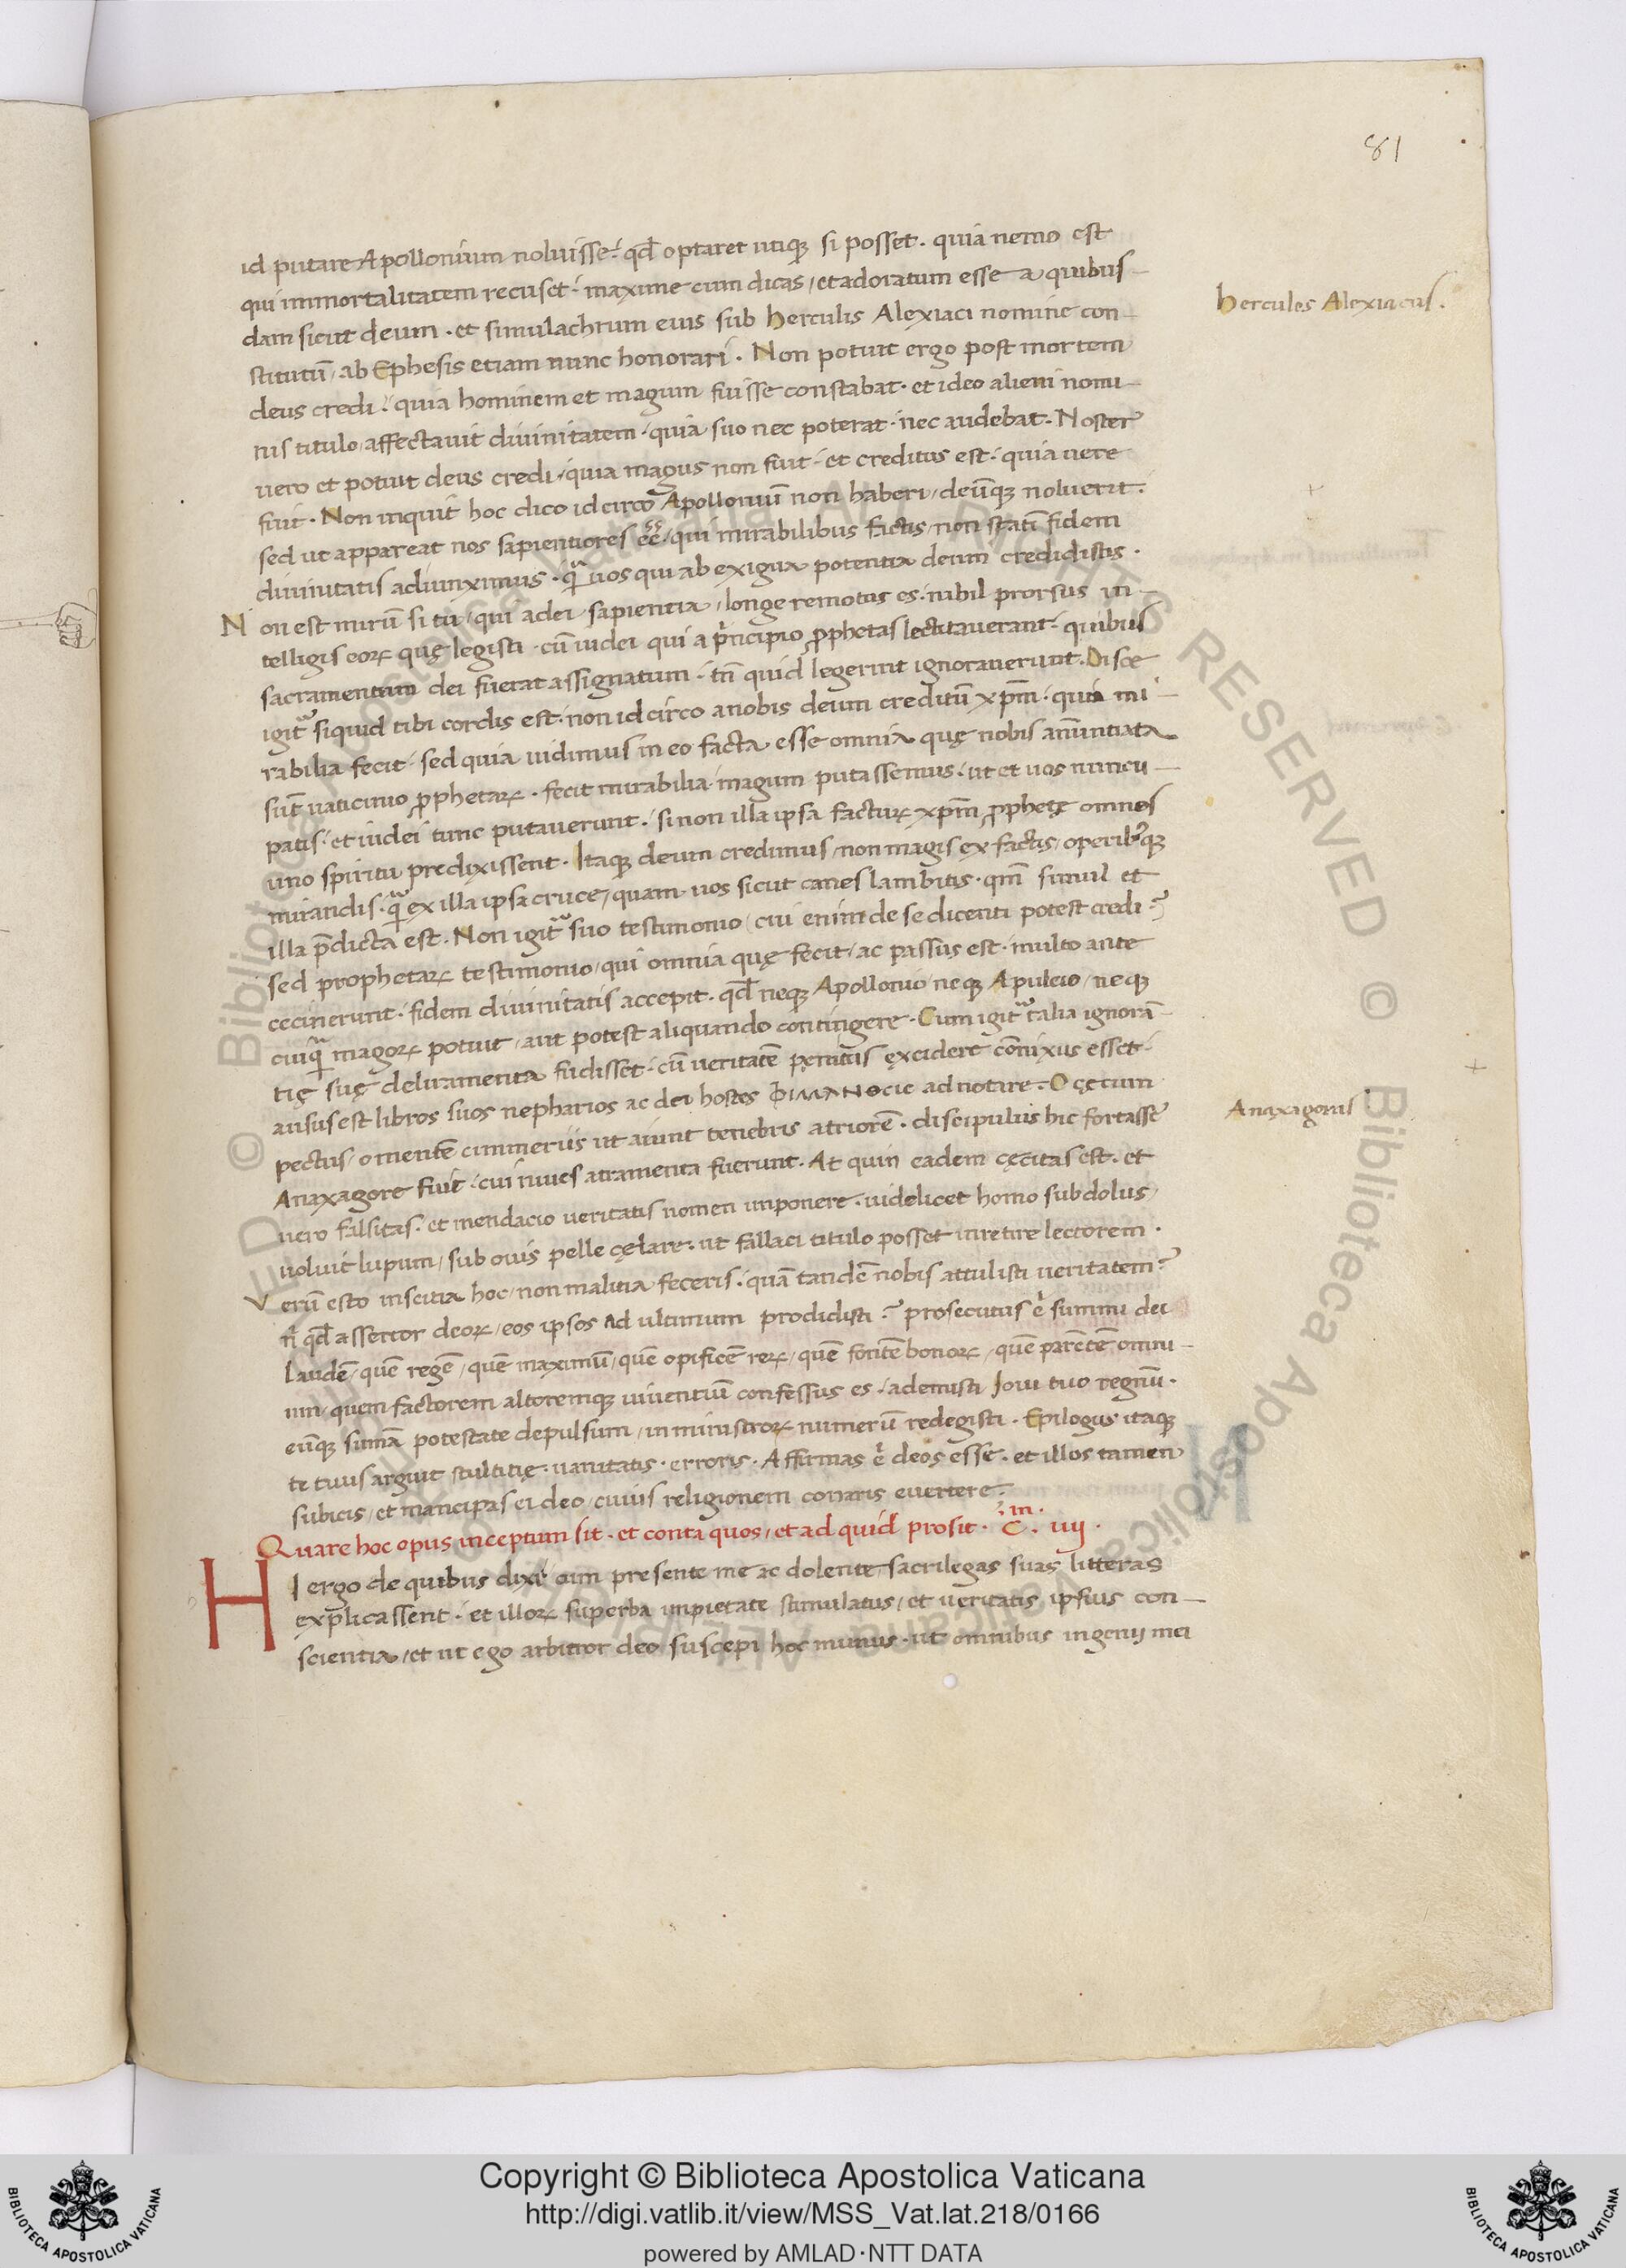 81
id putare Apollonium noluisse· qđ optaret utiqꝫ si posset. quia nemo est
qui immortalitatem recuset· maxime cum dicas, et adoratum esse a quibus-
dam sicut deum. et simulachrum eius sub herculis Alexiaci nomine con-
Hercules Alexiacus.
stitutū, ab Ephesis etiam nunc honorari. Non potuit ergo post mortem
deus credi. quia hominem et magum fuisse constabat. et ideo alieni nomi-
nis titulo, affectauit diuinitatem. quia suo nec poterat. nec audebat. Noster
uero et potuit deus credi, quia magus non fuit. et creditus est. quia uere
fuit. Non inquit hoc dico idcirco Apolloniū non haberi, deūqꝫ noluerit.
sed ut appareat nos sapientiores eē, qui mirabilibus factis, non statī fidem
diuinitatis adiunximus. qͣ uos qui ab exigua potentia deum credidistis.
Non est mirū si tu, qui a dei sapientia, longe remotus es. nihil prorsus in-
telligis eoꝝ quę legisti. cū iudei qui a pͥncipio ꝓphetas lectitauerant. quibus
sacramentum dei fuerat assignatum. tn̄ quid legerint ignorauerunt. Disce
igit᷑ siquid tibi cordis est. non idcirco a nobis deum creditū xp̄m. quia mi-
rabilia fecit. sed quia uidimus in eo facta esse omnia quę nobis anūntiata
sūt uaticinio ꝓphetaꝝ. fecit mirabilia. magum putassemus. ut et uos nuncu-
patis. et iudei tunc putauerunt. si non illa ipsa factuꝝ xp̄m ꝓphetę omnes
uno spiritu predixissent. Itaqꝫ deum credimus, non magis ex factis, operibꝰqꝫ
mirandis. qͣ ex illa ipsa cruce, quam uos sicut canes lambitis. qm̄ simul et
illa p̄dicta est. Non igit᷑ suo testimonio, cui enim de se dicenti potest credi?
sed prophetaꝝ testimonio, qui omnia quę fecit, ac passus est. multo ante
cecinerunt. fidem diuinitatis accepit. qđ neqꝫ Apollonio, neqꝫ Apuleio, neqꝫ
cuiqͣ magoꝝ potuit, aut potest aliquando contingere. Cum igit᷑ talia ignorā-
tię suę deliramenta fudisset. cū ueritatē penitus excidere cōnixus esset.
ausus est libros suos nepharios ac dei hostes ΦΙΛΑΛΗΘΕΙC ad notare. O cęcum
Anaxagoras
pectus, o mentē cimmeriis ut aiunt tenebris atriorē. discipulus hic fortasse
Anaxagore fuit. cui niues atramenta fuerunt. At quin eadem cęcitas est. et
uero falsitas. et mendacio ueritatis nomen imponere. uidelicet homo subdolus,
uoluit lupum, sub ouis pelle cęlare. ut fallaci titulo posset inretire lectorem.
Verū esto inscitia hoc, non malitia feceris. quā tandē nobis attulisti ueritatem?
n̄ qđ assertor deoꝝ, eos ipsos ad ultimum prodidisti? prosecutus ē summi dei
laudē, quē regē, quē maximū, quē opificē reꝝ, quē fontē bonoꝝ, quē parētē omni-
um, quem factorem altoremqꝫ uiuentiū confessus es. ademisti Ioui tuo regnū.
eūqꝫ sūma potestate depulsum, in ministroꝝ numerū redegisti. Epilogus itaqꝫ
te tuus arguit stultitię. uanitatis. erroris. Affirmas ē deos esse. et illos tamen
subicis, et mancipas ei deo, cuius religionem conaris euertere.
Quare hoc opus inceptum sit. et conta quos, et ad quid prosit. C̄m. iiij.
HI ergo de quibus dixi cum presente me ac dolente, sacrilegas suas litteras
explicassent. et illoꝝ superba impietate stimulatus, et ueritatis ipsius con-
scientia, et ut ego arbitror deo suscepi hoc munus. ut omnibus ingenii mei
Copyright © Biblioteca Apostolica Vaticana
http://digi.vatlib.it/view/MSS_Vat.lat.218/0166
powered by AMLAD·NTT DATA
BIBLIOTECA APOSTOLICA VATICANA
BIBLIOTECA APOSTOLICA VATICANA